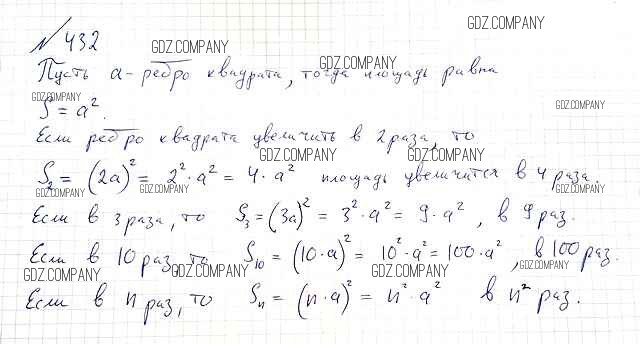 GDZ.COMPANY
№432
GDZ.COMPANY
GDZ.COMPANY
Пусть a - ребро квадрата, тогда площадь равна
GDZ.COMPANY
GDZ.COMPANY
S = a².
Если ребро квадрата увеличить в 2 раза, то
GDZ.COMPANY
GDZ.COMPANY
S₂ = (2a)² = 2² · a² = 4 · a² площадь увеличится в 4 раза.
GDZ.COMPANY
GDZ.COMPANY
GDZ.COMPANY
Если в 3 раза, то S₃ = (3a)² = 3² · a² = 9 · a², в 9 раз.
Если в 10 раз, то S₁₀ = (10 · a)² = 10² · a² = 100 · a², в 100 раз.
GDZ.COMPANY
GDZ.COMPANY
GDZ.COMPANY
GDZ.COMPANY
Если в n раз, то Sₙ = (n · a)² = n² · a² в n² раз.